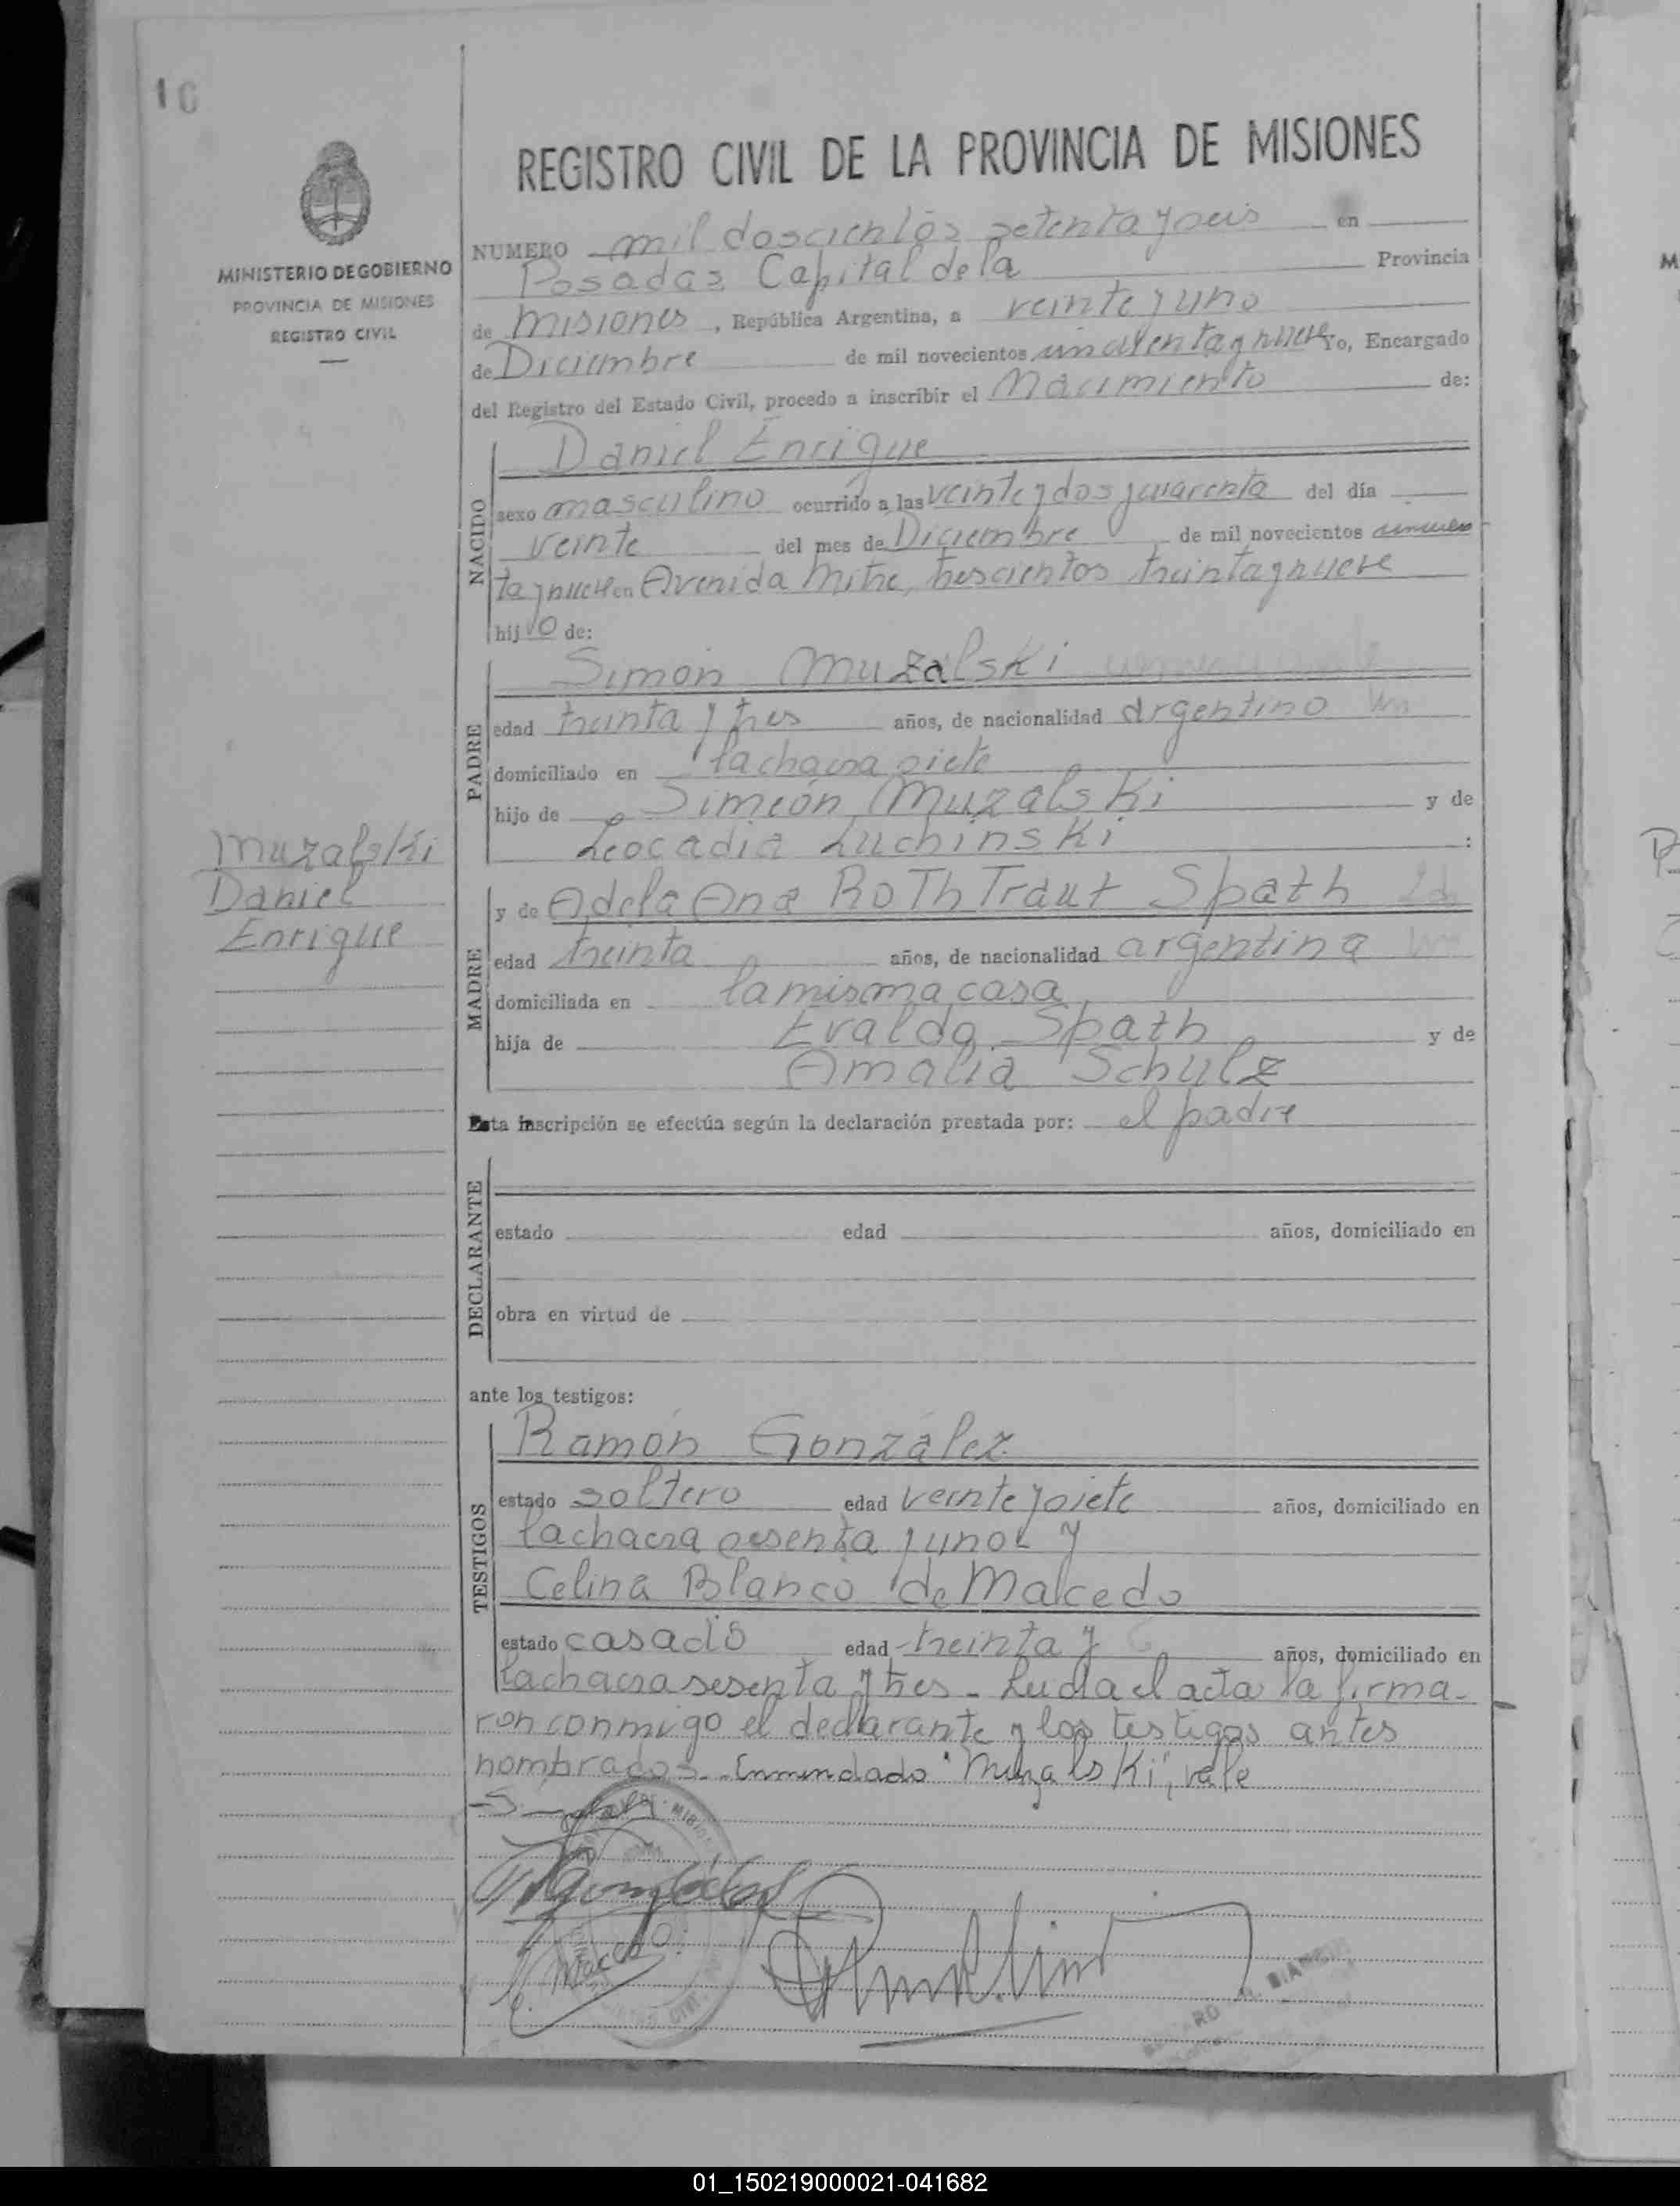 10
MINISTERIO DE GOBIERNO
PROVINCIA DE MISIONES
REGISTRO CIVIL
REGISTRO CIVIL DE LA PROVINCIA DE MISIONES
NUMERO mil doscientos setenta y seis en
Posadas Capital de la Provincia
de misiones, República Argentina, a veinte y uno
de Diciembre de mil novecientos cincuenta y nueve Yo, Encargado
del Registro del Estado Civil, procedo a inscribir el Nacimiento de:
NACIDO
Daniel Enrique
sexo masculino ocurrido a las veinte y dos y cuarenta del día
veinte del mes de Diciembre de mil novecientos cincuen
ta y nueve en Avenida Mitre, trescientos treinta y nueve
hijo de:
PADRE
Simón Muzalski
edad treinta y tres años, de nacionalidad argentino
domiciliado en la chacra siete
hijo de Simeón Muzalski y de
Leocadia Luchinski :
Muzalski
Daniel
Enrique
MADRE
y de Adela Ana RoThTraut Spath
edad treinta años, de nacionalidad argentina
domiciliada en la misma casa
hija de Evaldo Spath y de
Amalia Schulz
Esta inscripción se efectúa según la declaración prestada por: el padre
DECLARANTE
estado edad años, domiciliado en
obra en virtud de
ante los testigos:
TESTIGOS
Ramón González
estado soltero edad veinte y siete años, domiciliado en
la chacra sesenta y uno y
Celina Blanco de Macedo
estado casado edad treinta y años, domiciliado en
la chacra sesenta y tres - Leida el acta la firma-
ron conmigo el declarante y los testigos antes
nombrados.- Enmendado "Muzalski", vale
C. Macedo
01_150219000021-041682